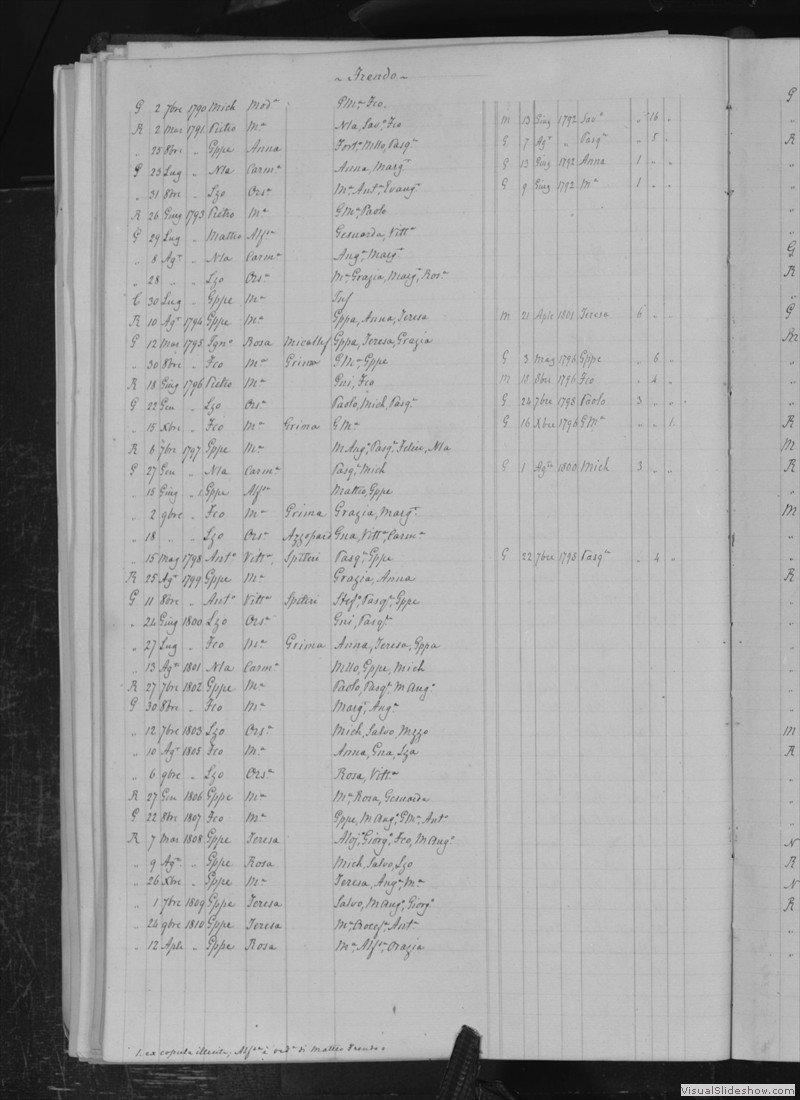 ~ Frendo ~
G 2 7bre 1790 Mich Modª GMª Fco.
R 2 Mar 1791 Pietro Mª Nla, Savª, Fco M 13 Giug 1792 Savª " 16 "
" 25 8bre " Gppe Anna Fortª, Mllo, Pasqª G 7 Agº " Pasqª " 5 "
G 23 Lug " Nla Carmª Anna, Margª G 13 Giug 1792 Anna 1 " "
" 31 8bre " Lzo Orsª Mª Antª Evangª G 9 Giug 1792 Mª 1 " "
R 26 Giug 1793 Pietro Mª GMª Paolo
G 29 Lug " Matteo Alfª Gesuarda, Vittª
" 8 Agº " Nla Carmª Augª Margª
" 28 " " Lzo Orsª Mª Grazia, Margª, Rosª
C 30 Lug " Gppe Mª Inf
R 10 Agº 1794 Gppe Mª Gppa, Anna, Teresa M 21 Aple 1801 Teresa 6 " "
G 12 Mar 1795 Ignº Rosa Micallef Gppa, Teresa, Grazia
" 30 8bre " Fco Mª Grima GMª, Gppe G 3 Mag 1796 Gppe " 6 "
R 18 Giug 1796 Pietro Mª Gni, Fco M 18 8bre 1796 Fco " 4 "
G 22 Gen " Lzo Orsª Paolo, Mich, Pasqª G 24 7bre 1798 Paolo 3 " "
" 15 Xbre " Fco Mª Grima GMª G 16 Xbre 1796 GMª " " 1
R 6 7bre 1797 Gppe Mª MAngª, Pasqª, Felice, Nla
G 27 Gen " Nla Carmª Pasqª, Mich G 1 Agº 1800 Mich 3 " "
" 15 Giug " 1. Gppe Alfª Matteo, Gppe
" 2 9bre " Fco Mª Grima Grazia, Margª
" 18 " " Lzo Orsª Azzopard Gna, Vittª, Carmª
" 15 Mag 1798 Antº Vittª Spiteri Pasqª, Gppe G 22 7bre 1798 Pasqª " 4 "
R 25 Agº 1799 Gppe Mª Grazia, Anna
G 11 8bre " Antº Vittª Spiteri Stefª, Pasqª, Gppe
" 24 Giug 1800 Lzo Orsª Gni, Pasqª
" 27 Lug " Fco Mª Grima Anna, Teresa, Gppa
" 13 Agº 1801 Nla Carmª Mllo, Gppe, Mich
R 27 7bre 1802 Gppe Mª Paolo, Pasqª, MAngª
G 30 8bre " Fco Mª Margª, Augª
" 12 7bre 1803 Lzo Orsª Mich, Salvo, Mzzo
" 10 Agº 1805 Fco Mª Anna, Gna, Lza
" 6 9bre " Lzo Orsª Rosa, Vittª
R 27 Gen 1806 Gppe Mª Mª Rosa, Gesuarda
G 22 8bre 1807 Fco Mª Gppe, MAngª, GMª, Antª
R 7 Mar 1808 Gppe Teresa Alojª, Giorgº, Fco, MAngª
" 9 Agº " Gppe Rosa Mich, Salvo, Lzo
" 26 Xbre " Gppe Mª Teresa, Augª, Mª
" 1 7bre 1809 Gppe Teresa Salvo, MAngª, Giorgº
" 24 9bre 1810 Gppe Teresa Mª Crocefª, Antª
" 12 Aple " Gppe Rosa Mª, Alfª, Orazia
1. ex copula illecita, Alfª è vedª di Matteo Frendo
VisualSlideshow.com